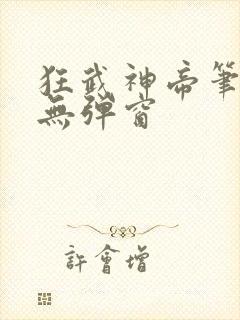 狂武神帝筆
無彈窗
許會增